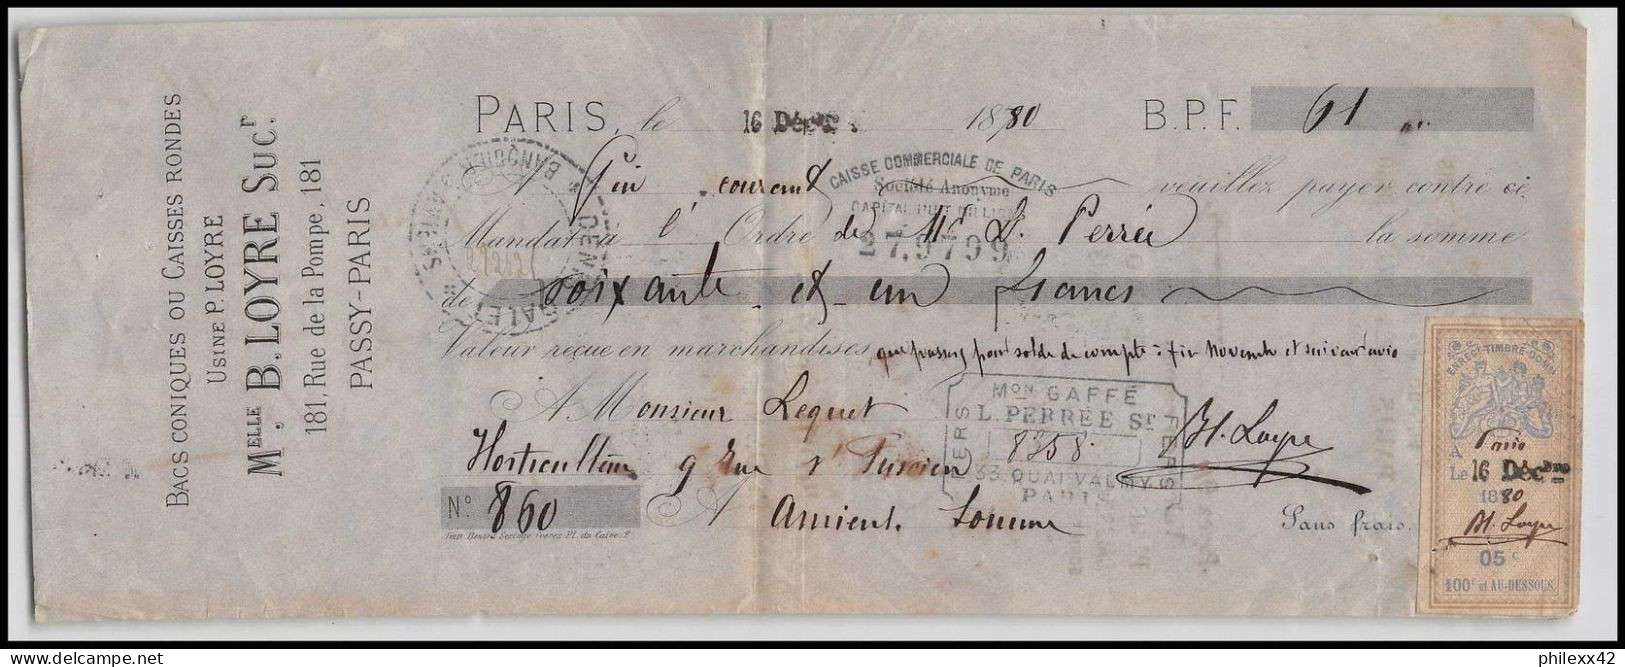 BACS CONIQUES OU CAISSES RONDES
USINE P. LOYRE
MELLE B. LOYRE SUC.R
181, Rue de la Pompe, 181
PASSY-PARIS
PARIS, le 16 Déc 1880 B.P.F. 61
A fin courant veuillez payer contre ce
Mandat à l'Ordre de Mr L. Perrée la somme
de soixante et un francs
Valeur reçue en marchandises, que passez pour solde de compte à fin Novembre et suivant avis
A Monsieur Lequet
Horticulteur 9 rue St Fuscien
No 860 A Amiens. Somme
Sans frais.
Imp. Benard Seringe Frères Pl. du Caire. 2
CAISSE COMMERCIALE DE PARIS
Société Anonyme
27.9799
BANQUIER
MON GAFFÉ
L. PERRÉE Sr
8258
33. QUAI VALMY.
PARIS
PERS
FERS
B. Loyre
ENREGT-TIMBRE-DOM
A Paris
Le 16 Déc
1880
B. Loyre
05 c
100f et AU-DESSOUS
philexx42